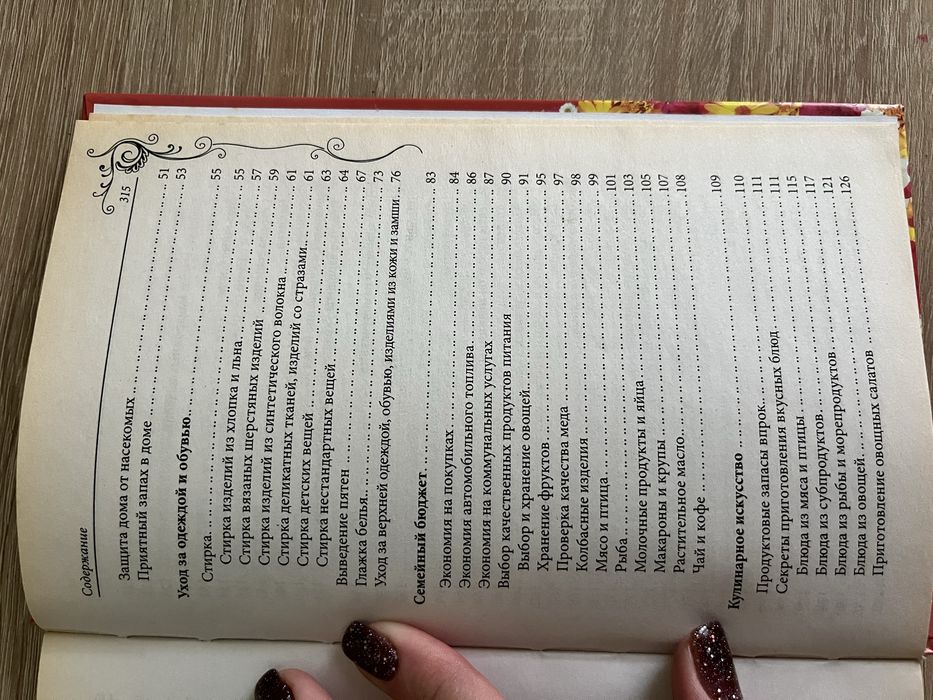 Содержание 315
Защита дома от насекомых 51
Приятный запах в доме 53
Уход за одеждой и обувью 55
Стирка 55
Стирка изделий из хлопка и льна 57
Стирка вязаных шерстяных изделий 59
Стирка изделий из синтетического волокна 61
Стирка деликатных тканей, изделий со стразами 61
Стирка детских вещей 63
Стирка нестандартных вещей 64
Выведение пятен 67
Глажка белья 73
Уход за верхней одеждой, обувью, изделиями из кожи и замши 76
Семейный бюджет 83
Экономия на покупках 84
Экономия автомобильного топлива 86
Экономия на коммунальных услугах 87
Выбор качественных продуктов питания 90
Выбор и хранение овощей 91
Хранение фруктов 95
Проверка качества меда 97
Колбасные изделия 98
Мясо и птица 99
Рыба 101
Молочные продукты и яйца 103
Макароны и крупы 105
Растительное масло 107
Чай и кофе 108
Кулинарное искусство 109
Продуктовые запасы впрок 110
Секреты приготовления вкусных блюд 111
Блюда из мяса и птицы 111
Блюда из субпродуктов 115
Блюда из рыбы и морепродуктов 117
Блюда из овощей 121
Приготовление овощных салатов 126